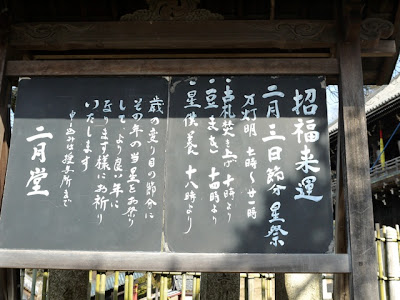 招福来運
二月三日節分 星祭
万灯明 七時〜廿一時
・古札焚き上げ 十時より
・豆まき 十四時より
・星供養 十八時より
歳の変り目の節分に
その年の当星をお祭り
して、より良い年に
なります様にお祈り
いたします
申し込みは授与所まで
二月堂